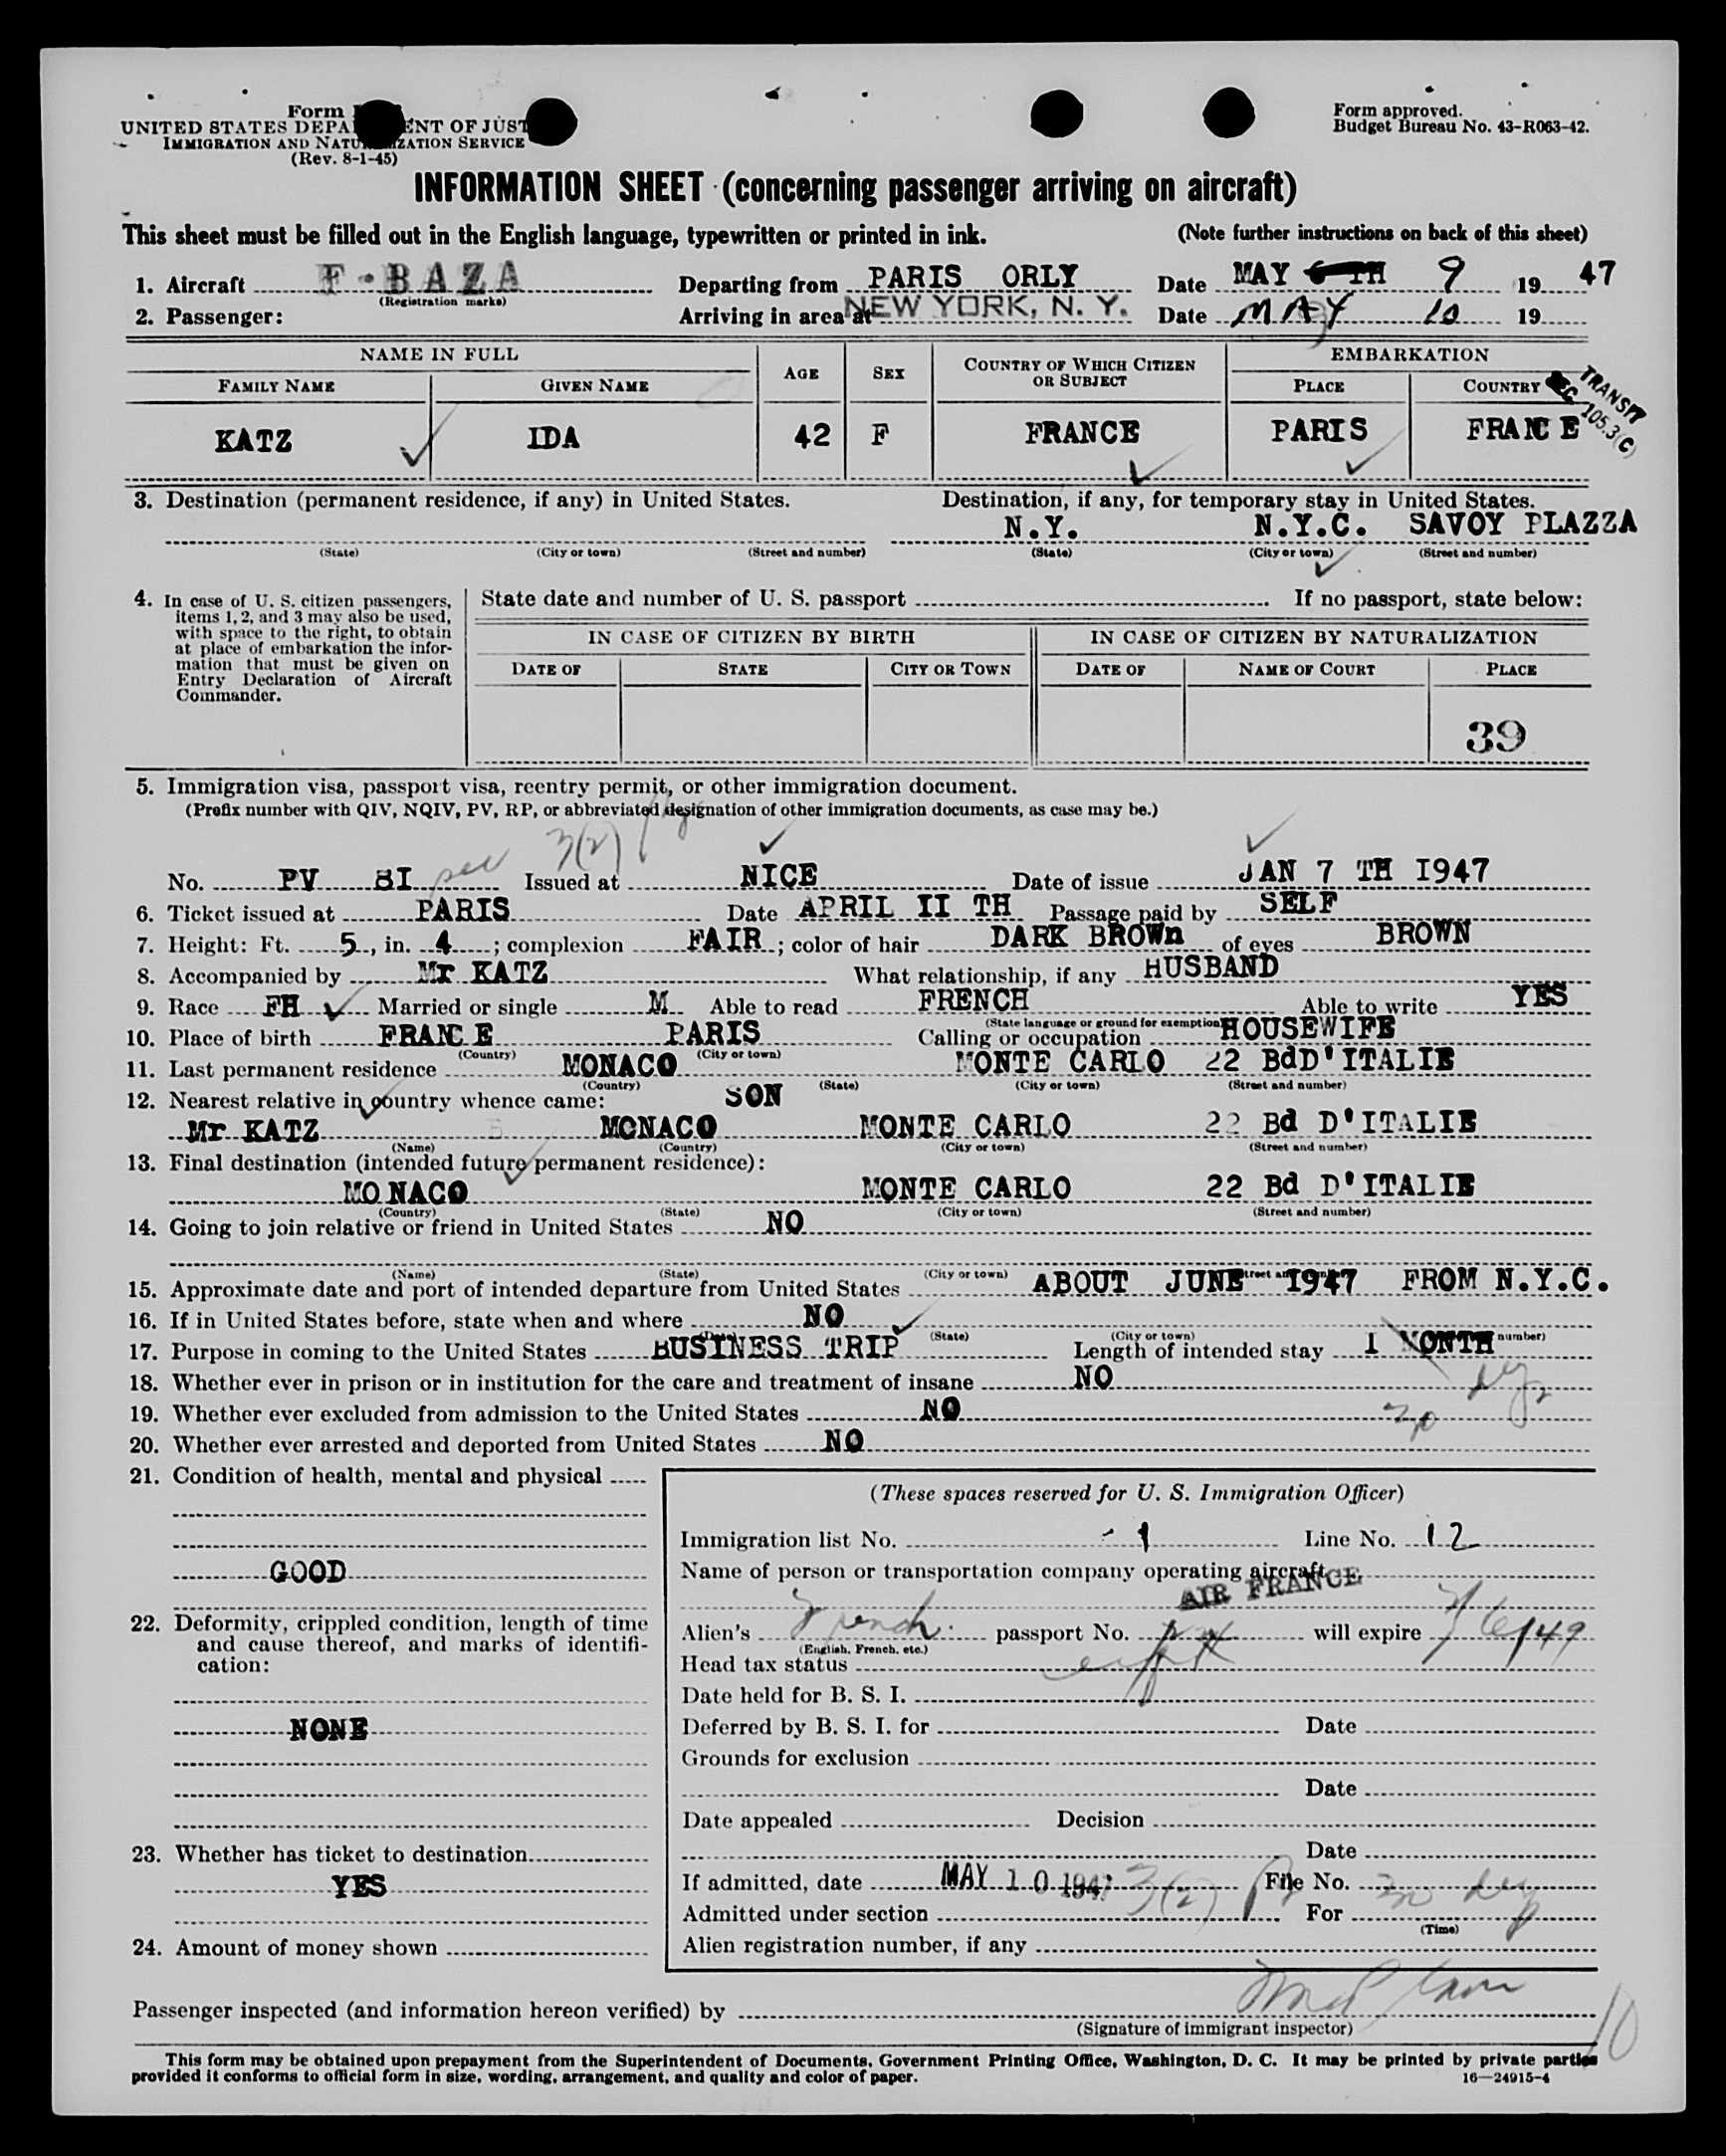 Form
UNITED STATES DEPA ENT OF JUST
IMMIGRATION AND NATU IZATION SERVICE
(Rev. 8-1-45)
Form approved.
Budget Bureau No. 43-R063-42.
INFORMATION SHEET (concerning passenger arriving on aircraft)
This sheet must be filled out in the English language, typewritten or printed in ink. (Note further instructions on back of this sheet)
1. Aircraft F-BAZA Departing from PARIS ORLY Date MAY 6 TH 9 19 47
(Registration marks)
2. Passenger: Arriving in area at NEW YORK, N. Y. Date MAY 10 19
NAME IN FULL AGE SEX COUNTRY OF WHICH CITIZEN OR SUBJECT EMBARKATION
FAMILY NAME GIVEN NAME PLACE COUNTRY
TRANSIT
SEC 105.3(C)
KATZ IDA 42 F FRANCE PARIS FRANCE
3. Destination (permanent residence, if any) in United States. Destination, if any, for temporary stay in United States.
N.Y. N.Y.C. SAVOY PLAZZA
(State) (City or town) (Street and number) (State) (City or town) (Street and number)
4. In case of U. S. citizen passengers, items 1, 2, and 3 may also be used, with space to the right, to obtain at place of embarkation the information that must be given on Entry Declaration of Aircraft Commander.
State date and number of U. S. passport If no passport, state below:
IN CASE OF CITIZEN BY BIRTH IN CASE OF CITIZEN BY NATURALIZATION
DATE OF STATE CITY OR TOWN DATE OF NAME OF COURT PLACE
39
5. Immigration visa, passport visa, reentry permit, or other immigration document.
(Prefix number with QIV, NQIV, PV, RP, or abbreviated designation of other immigration documents, as case may be.)
3(2)
No. PV 8I sec Issued at NICE Date of issue JAN 7 TH I947
6. Ticket issued at PARIS Date APRIL II TH Passage paid by SELF
7. Height: Ft. 5, in. 4; complexion FAIR; color of hair DARK BROWn of eyes BROWN
8. Accompanied by Mr KATZ What relationship, if any HUSBAND
9. Race FH Married or single M Able to read FRENCH Able to write YES
(State language or ground for exemption)
10. Place of birth FRANCE PARIS Calling or occupation HOUSEWIFE
(Country) (City or town)
11. Last permanent residence MONACO MONTE CARLO 22 BdD'ITALIE
(Country) (State) (City or town) (Street and number)
12. Nearest relative in country whence came: SON
Mr KATZ MONACO MONTE CARLO 22 Bd D'ITALIE
(Name) (Country) (City or town) (Street and number)
13. Final destination (intended future permanent residence):
MONACO MONTE CARLO 22 Bd D'ITALIE
(Country) (State) (City or town) (Street and number)
14. Going to join relative or friend in United States NO
(Name) (State) (City or town)
15. Approximate date and port of intended departure from United States ABOUT JUNE I947 FROM N.Y.C.
16. If in United States before, state when and where NO
(State) (City or town) number)
17. Purpose in coming to the United States BUSINESS TRIP Length of intended stay I MONTH
18. Whether ever in prison or in institution for the care and treatment of insane NO
19. Whether ever excluded from admission to the United States NO
20. Whether ever arrested and deported from United States NO
21. Condition of health, mental and physical
GOOD
22. Deformity, crippled condition, length of time and cause thereof, and marks of identification:
NONE
23. Whether has ticket to destination
YES
24. Amount of money shown
(These spaces reserved for U. S. Immigration Officer)
Immigration list No. 1 Line No. 12
Name of person or transportation company operating aircraft
AIR FRANCE
Alien's French passport No. will expire 7/6/49
(English, French, etc.)
Head tax status
Date held for B. S. I.
Deferred by B. S. I. for Date
Grounds for exclusion
Date
Date appealed Decision
Date
If admitted, date MAY 10 1947 File No.
Admitted under section 3(2) For 30 dys
(Time)
Alien registration number, if any
Passenger inspected (and information hereon verified) by
(Signature of immigrant inspector)
10
This form may be obtained upon prepayment from the Superintendent of Documents, Government Printing Office, Washington, D. C. It may be printed by private parties
provided it conforms to official form in size, wording, arrangement, and quality and color of paper.
16—24915-4